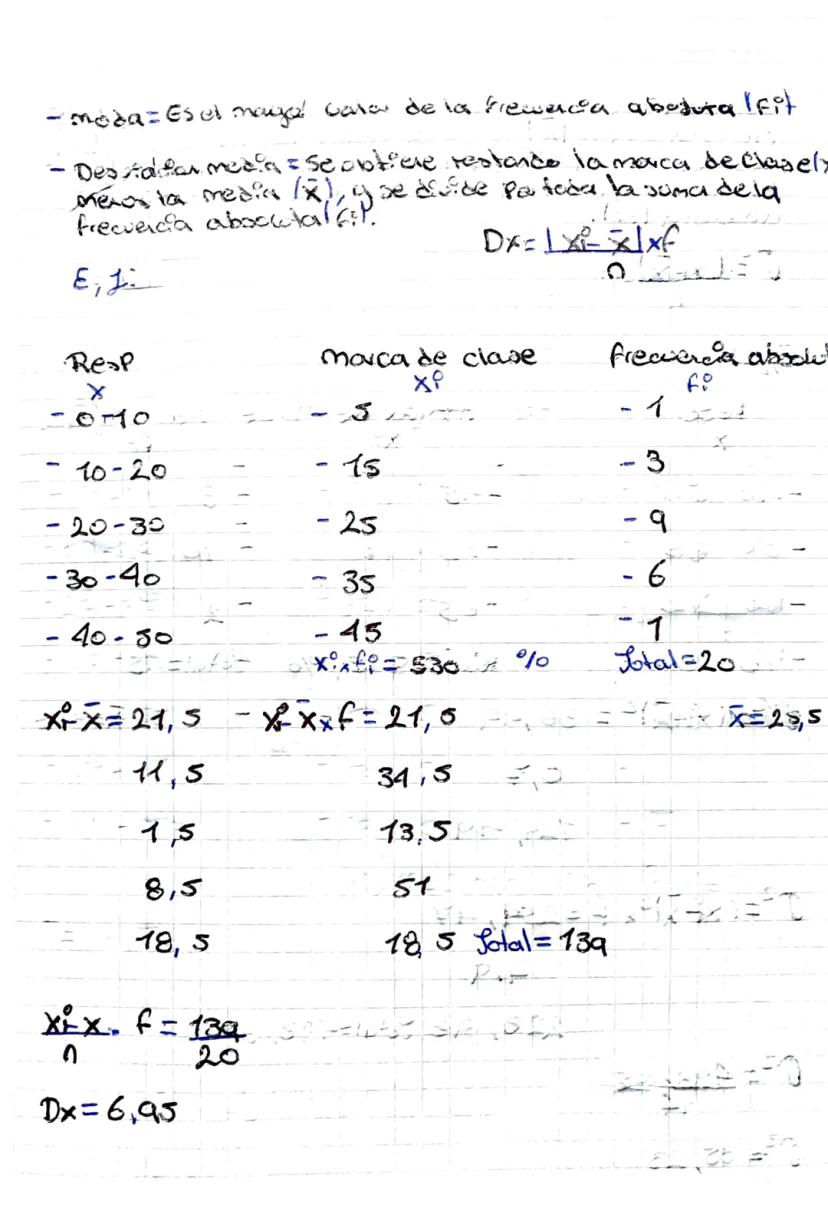 - moda = Es el mayor valor de la frecuencia absoluta (fi)
- Desviación media = Se obtiene restando la marca de clase (x
menos la media (x̄), y se divide por toda la suma de la
frecuencia absoluta (fi).
Dx = |xi - x̄| x f
n
Ej:
Resp marca de clase frecuencia absolut
x xi fi
- 0-10 - 5 - 1
- 10-20 - 15 - 3
- 20-30 - 25 - 9
- 30-40 - 35 - 6
- 40-50 - 45 - 1
xi x fi = 530 % Total = 20
xi - x̄ = 21,5 - xi - x̄ x f = 21,5 x̄ = 26,5
11,5 34,5
1,5 13,5
8,5 51
18,5 18,5 Total = 139
xi - x . f = 139
n 20
Dx = 6,95